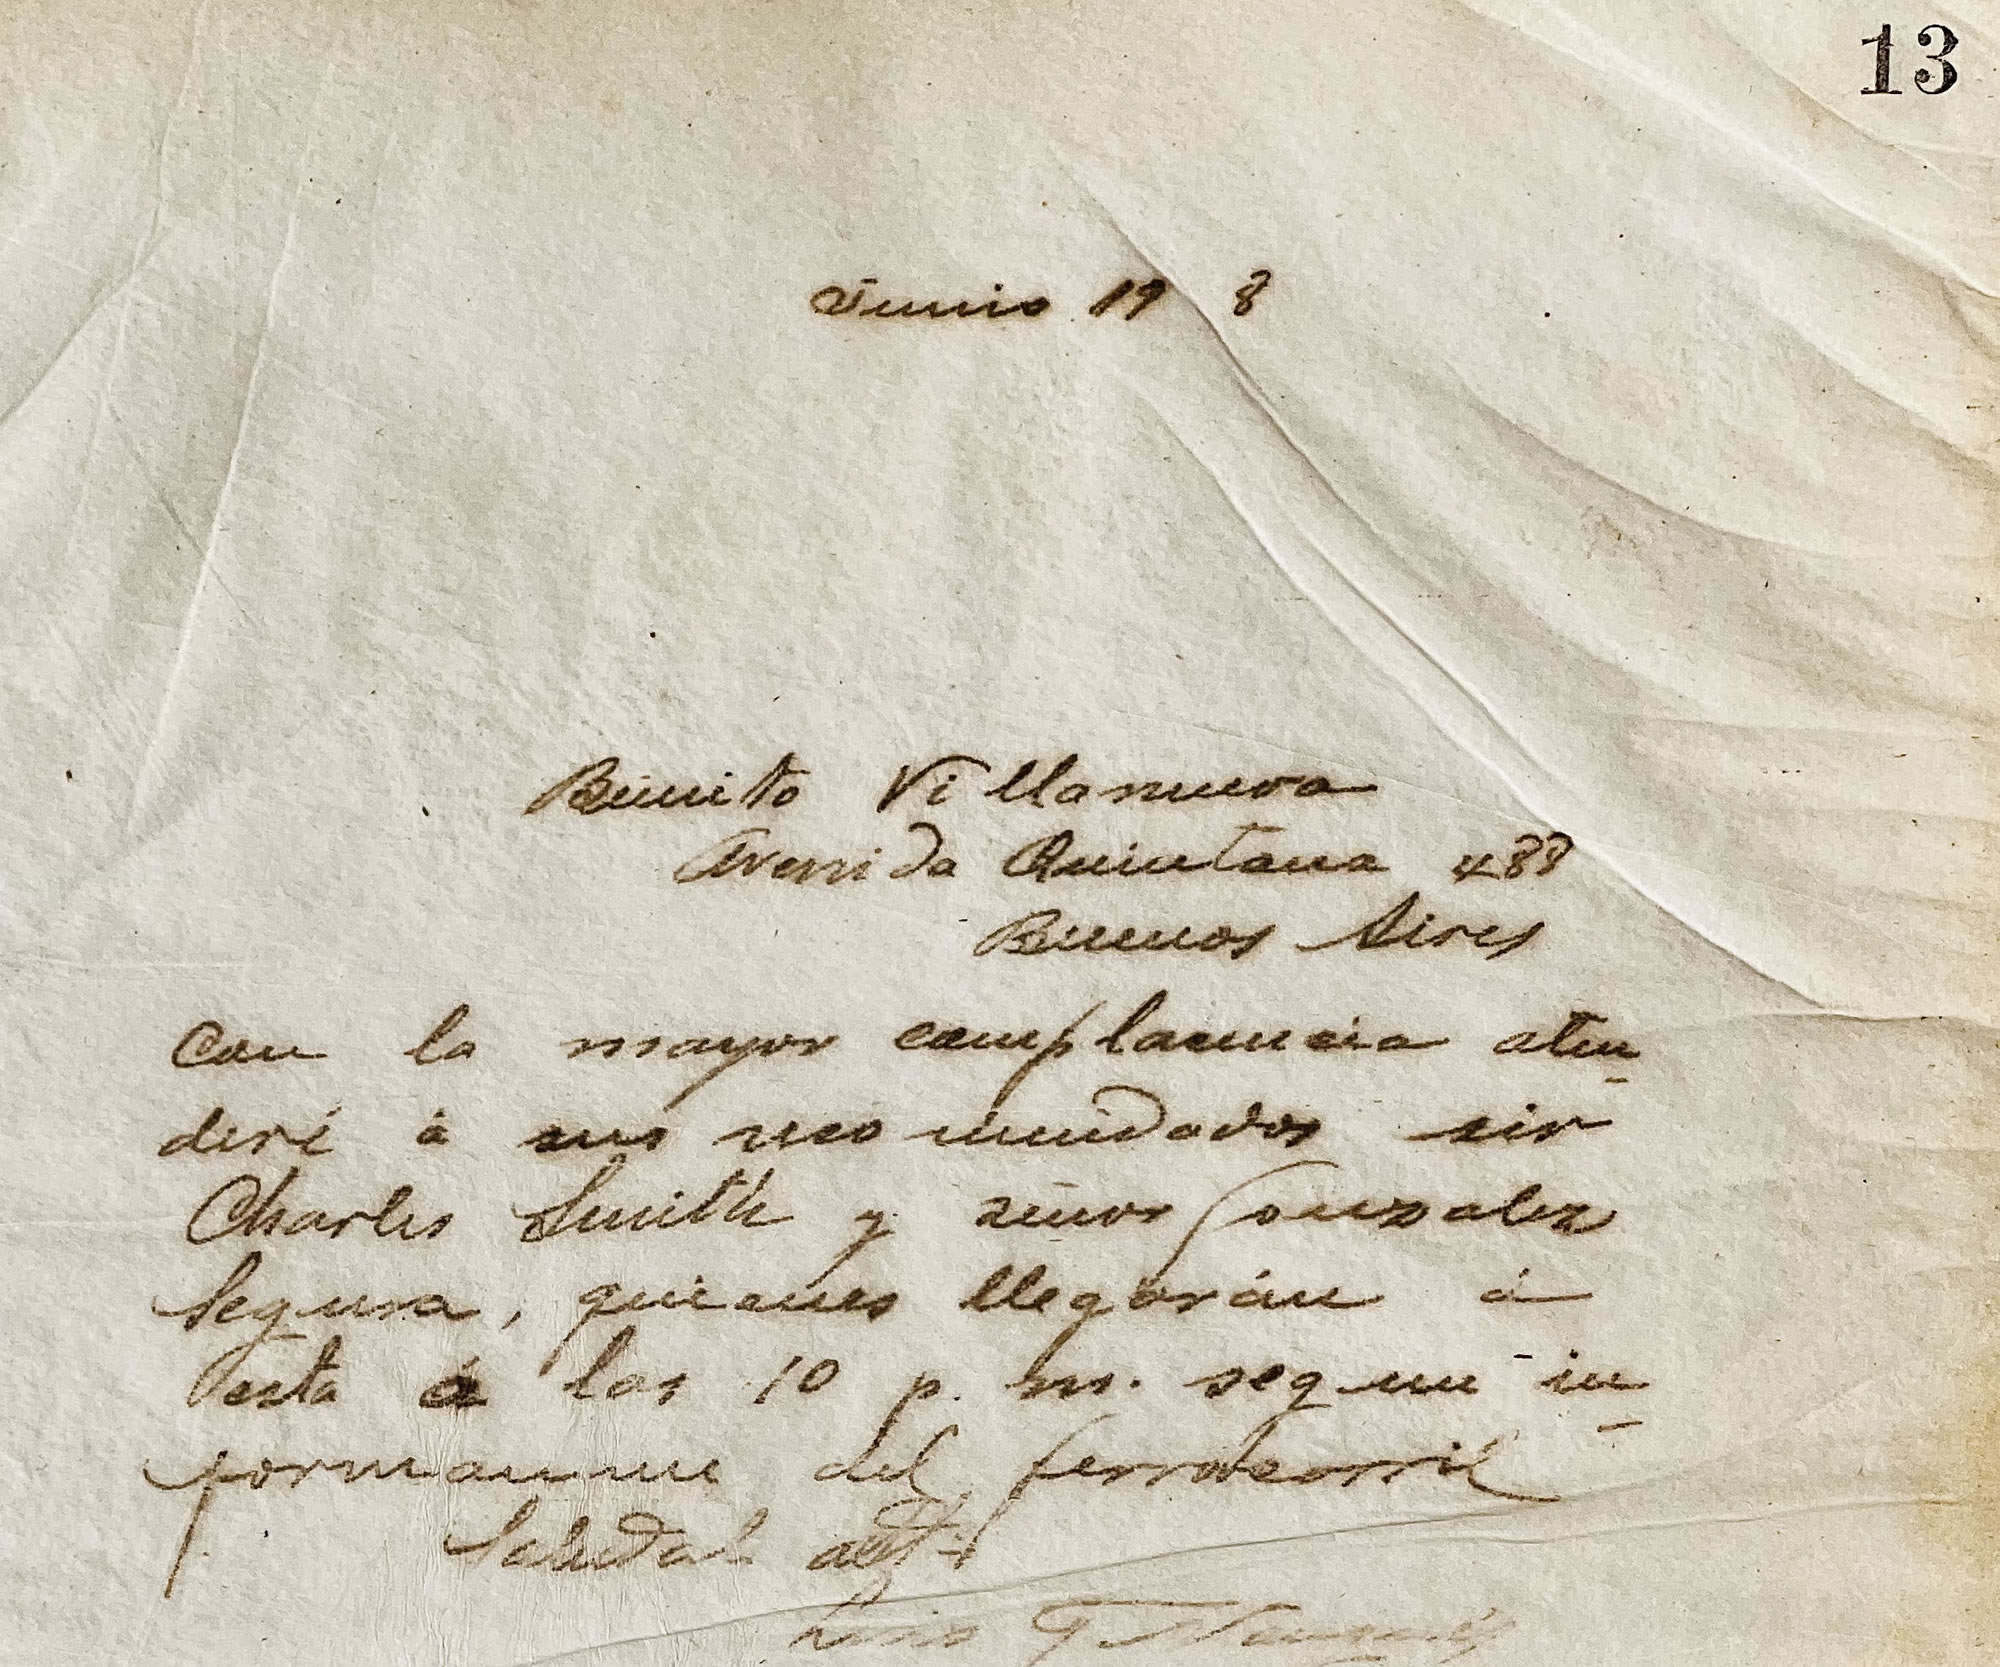 13
Junio 19 8
Benito Villanueva
Avenida Quintana 488
Buenos Aires
Con la mayor complacencia aten-
deré á sus recomendados sir
Charles Smith y señor Gonzalez
Segura, quienes llegarán á
esta á las 10 p. m. segun in-
formanme del ferrocarril
Saludal
Luis